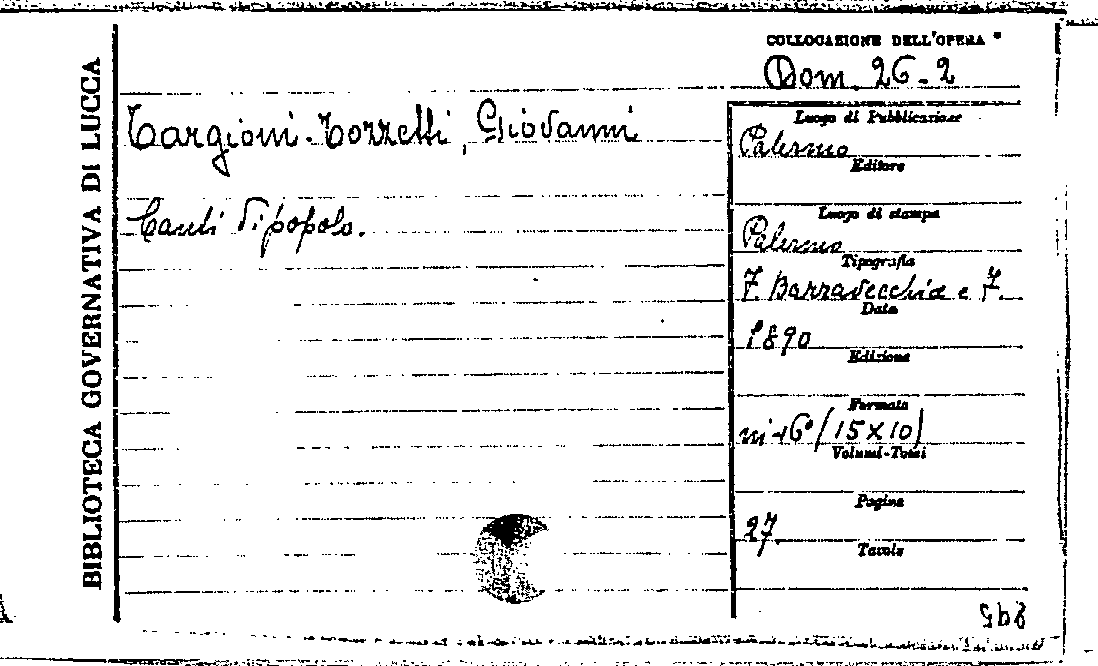 BIBLIOTECA GOVERNATIVA DI LUCCA
COLLOCAZIONE DELL'OPERA
Dom. 26-2
Targioni-Tozzetti, Giovanni
Canti di popolo.
Luogo di Pubblicazione
Palermo
Editore
Luogo di stampa
Palermo
Tipografia
F. Barravecchia e F.
Data
1890
Edizione
Formato
in-16° (15X10)
Volumi-Tomi
Pagine
27
Tavole